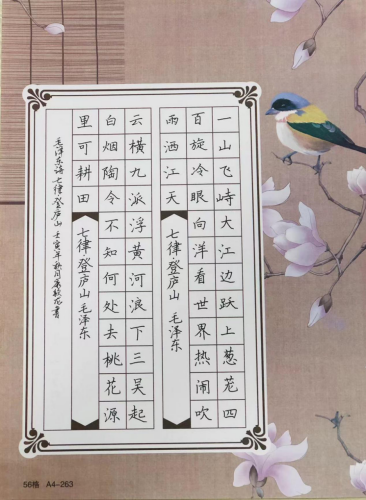 一山飞峙大江边跃上葱茏四
百旋冷眼向洋看世界热闹吹
雨洒江天
七律登庐山 毛泽东
云横九派浮黄河浪下三吴起
白烟陶令不知何处去桃花源
里可耕田
七律登庐山 毛泽东
毛泽东诗七律登庐山 壬寅年秋月 书
56格 A4-263